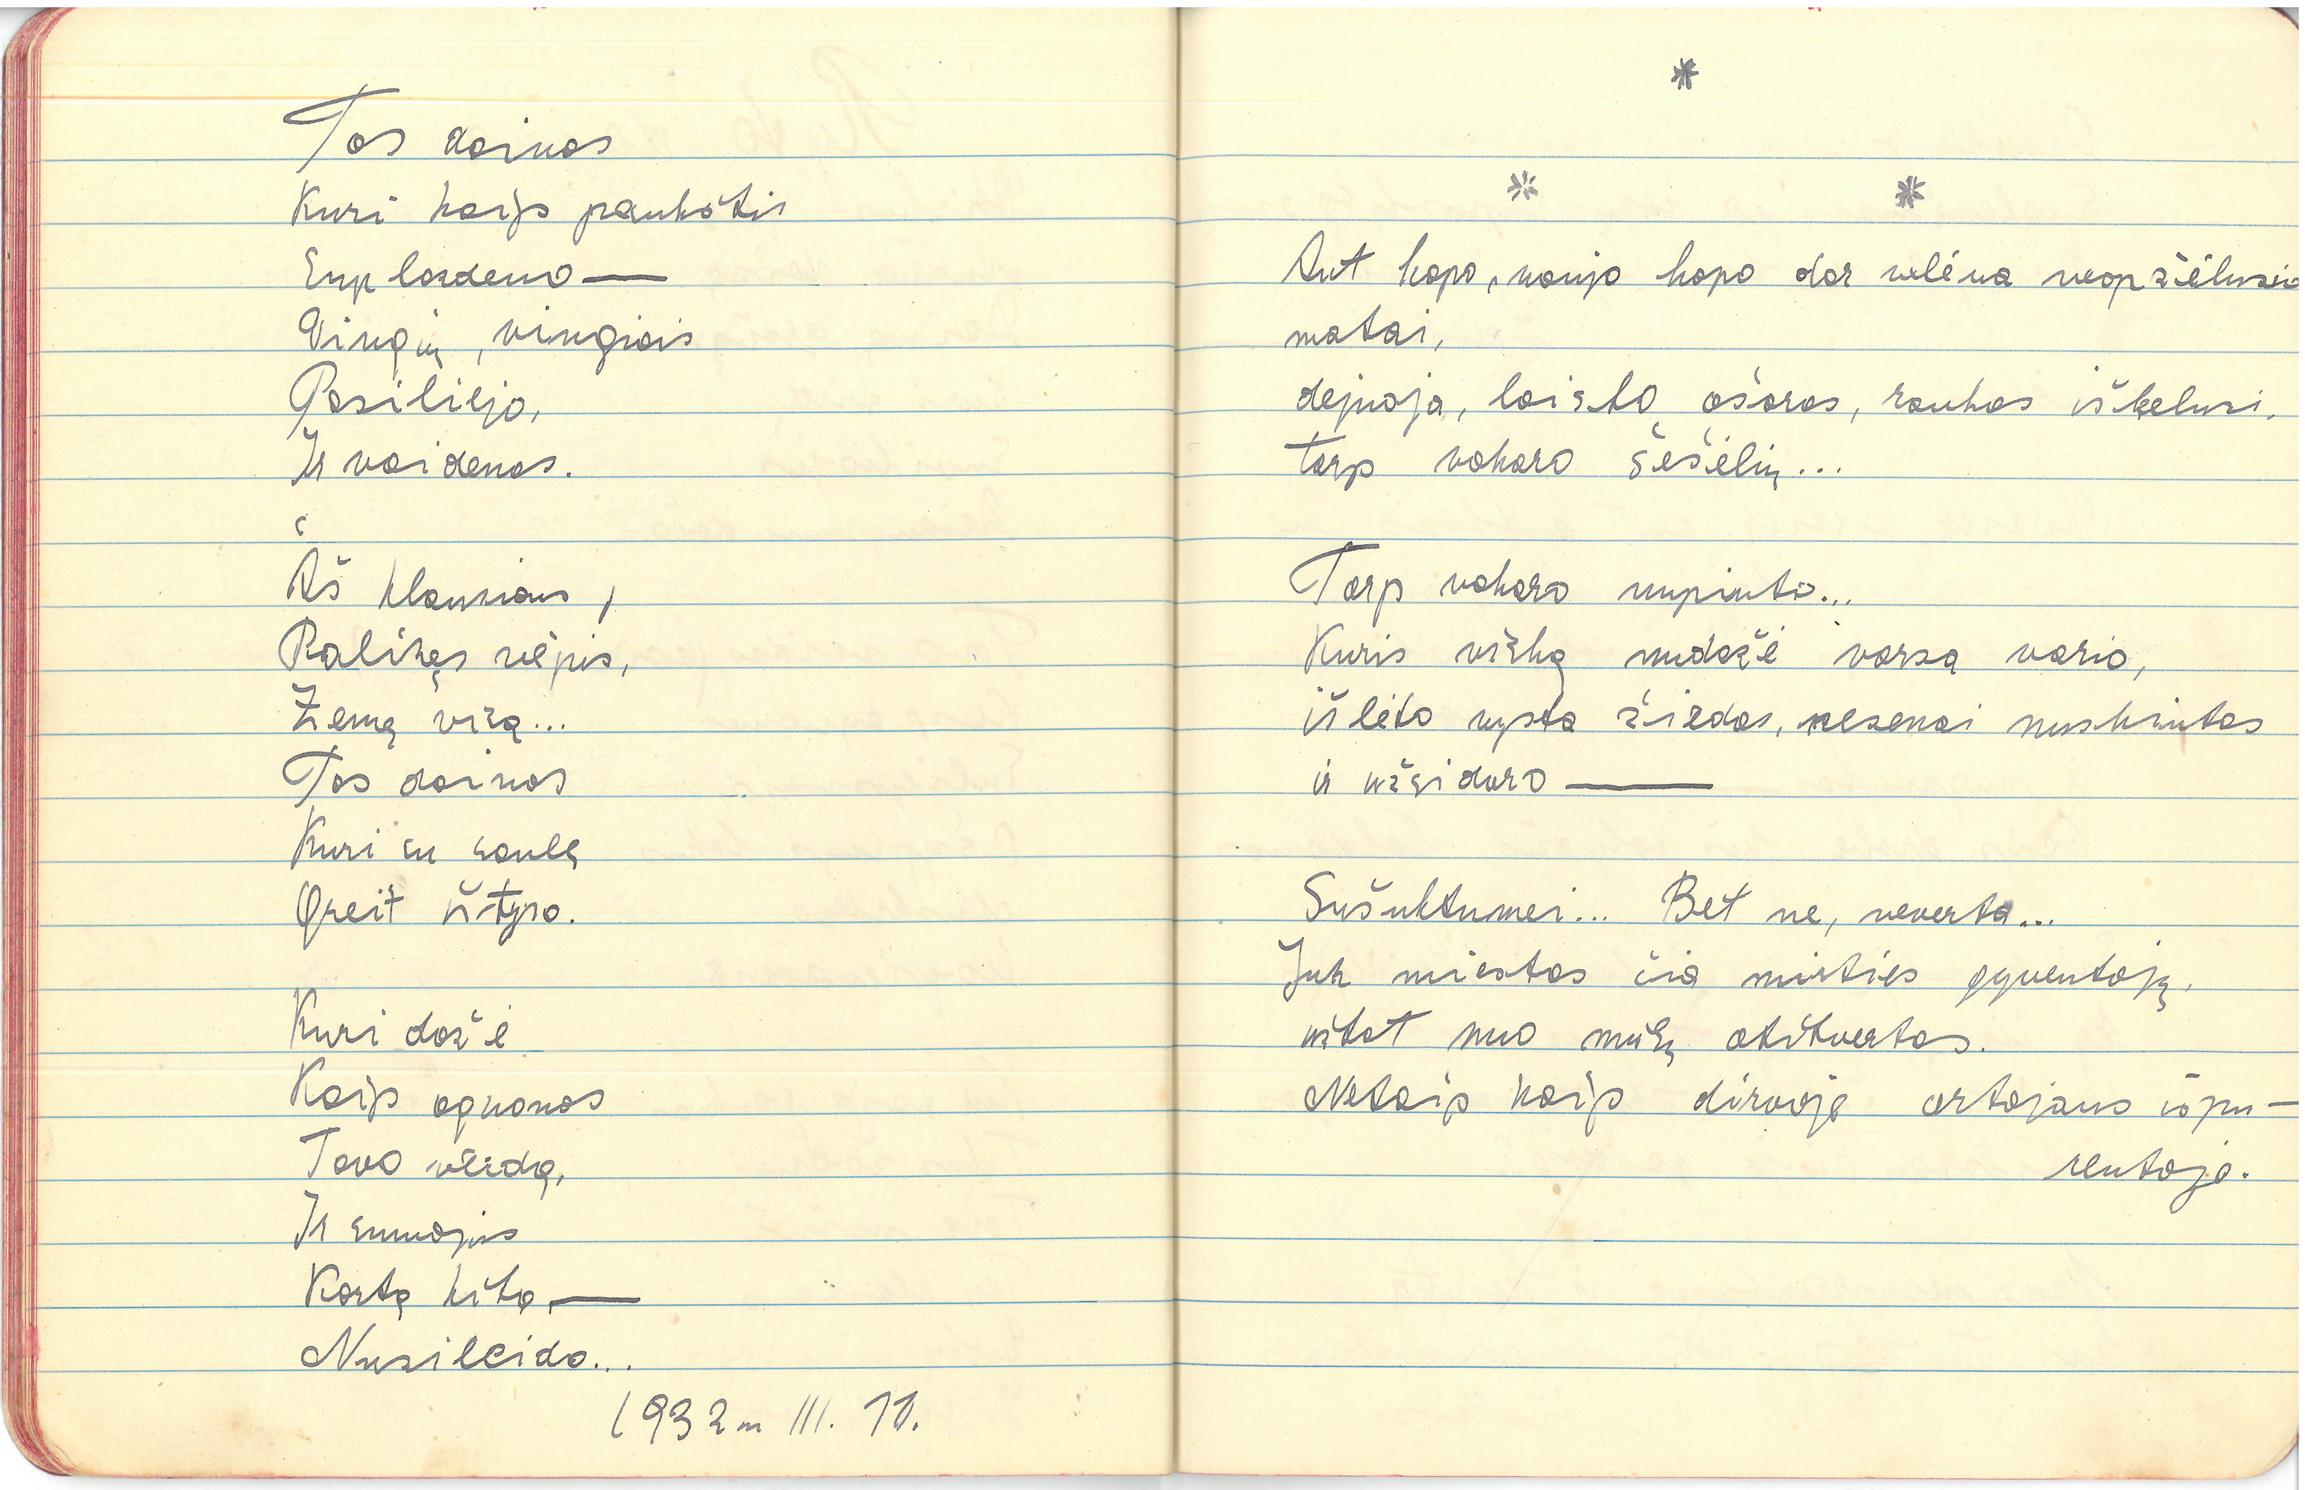 Tos dainos
Kuri kaip paukštis
Suplazdeno —
Vingių, vingiais
Pasiliejo,
Ir vaidenas.
Aš klausiaus,
Palikęs vėjus,
Žemę visą...
Tos dainos
Kuri su saulę
Greit ištyso.
Kuri dažė
Kaip aguonas
Tavo veidą,
Ir sumojus
Kartą kitą, —
Nusileido...
1932 m III. 11.
*
* *
Ant kapo, naujo kapo dar velėna neapžėlusio
matai,
dejuoja, laisto ašaras, rankas iškelusi,
tarp vakaro šešėlių...
Tarp vakaro nupinto...
Kuris viską nudažė varsa vario,
iš lėto vysta žiedas, nesenai nuskintas
ir užsidaro —
Sušuktumei... Bet ne, neverta...
Juk miestas čia mirties gyventojų,
užtat nuo mūsų atitvertas.
Netaip kaip dirvoje artojaus išpu-
rentoje.